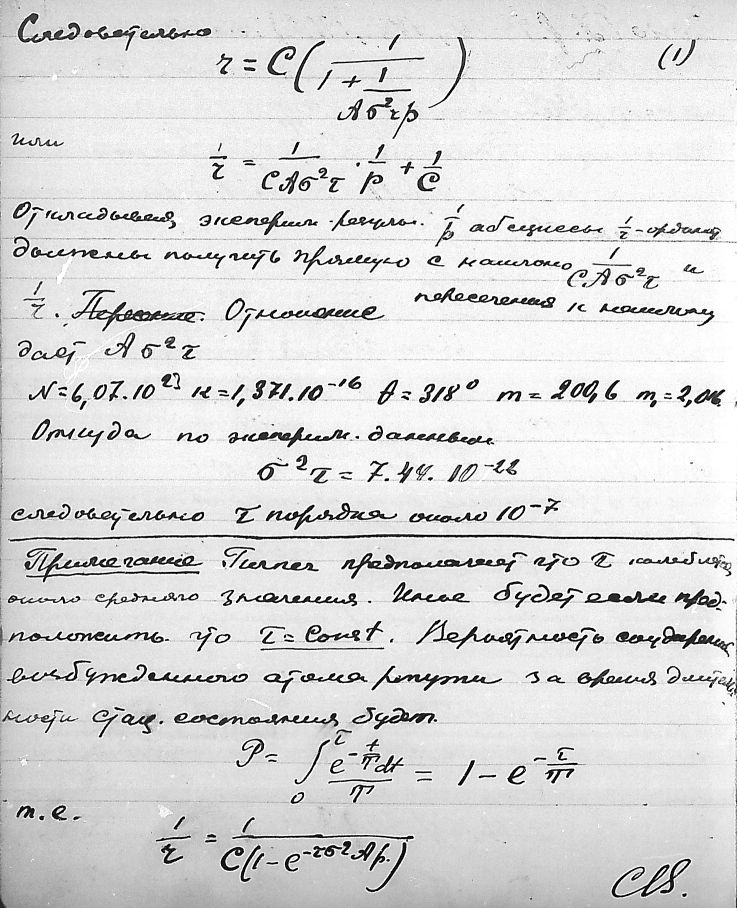 Следовательно
r = C ( 1 / (1 + 1 / (Aσ²τp)) ) (1)
или
1/r = 1/(CAσ²τ) · 1/p + 1/C
Откладывая, эксперим. результ. 1/p абсциссы 1/r - ординат
должны получить прямую с наклоно 1/(CAσ²τ) и
1/r. Отношение пересечения к наклону
дает Aσ²τ
N = 6,07.10²³ к = 1,371.10⁻¹⁶ θ = 318° m = 200,6 m₁ = 2,016.
Откуда по эксперим. данным
σ²τ = 7.44. 10⁻²²
следовательно τ порядка около 10⁻⁷
Примечание Turner предполагает что τ колеблется
около среднего значения. Иное будет если пред-
положить что τ = Const. Вероятность соударения
возбужденного атома ртути за время длитель-
ности стац. состояния будет
P = ∫₀^τ (e^(-t/T) dt)/T = 1 - e^(-τ/T)
т.е.
1/r = 1/(C(1 - e^(-τσ²Ap.)))